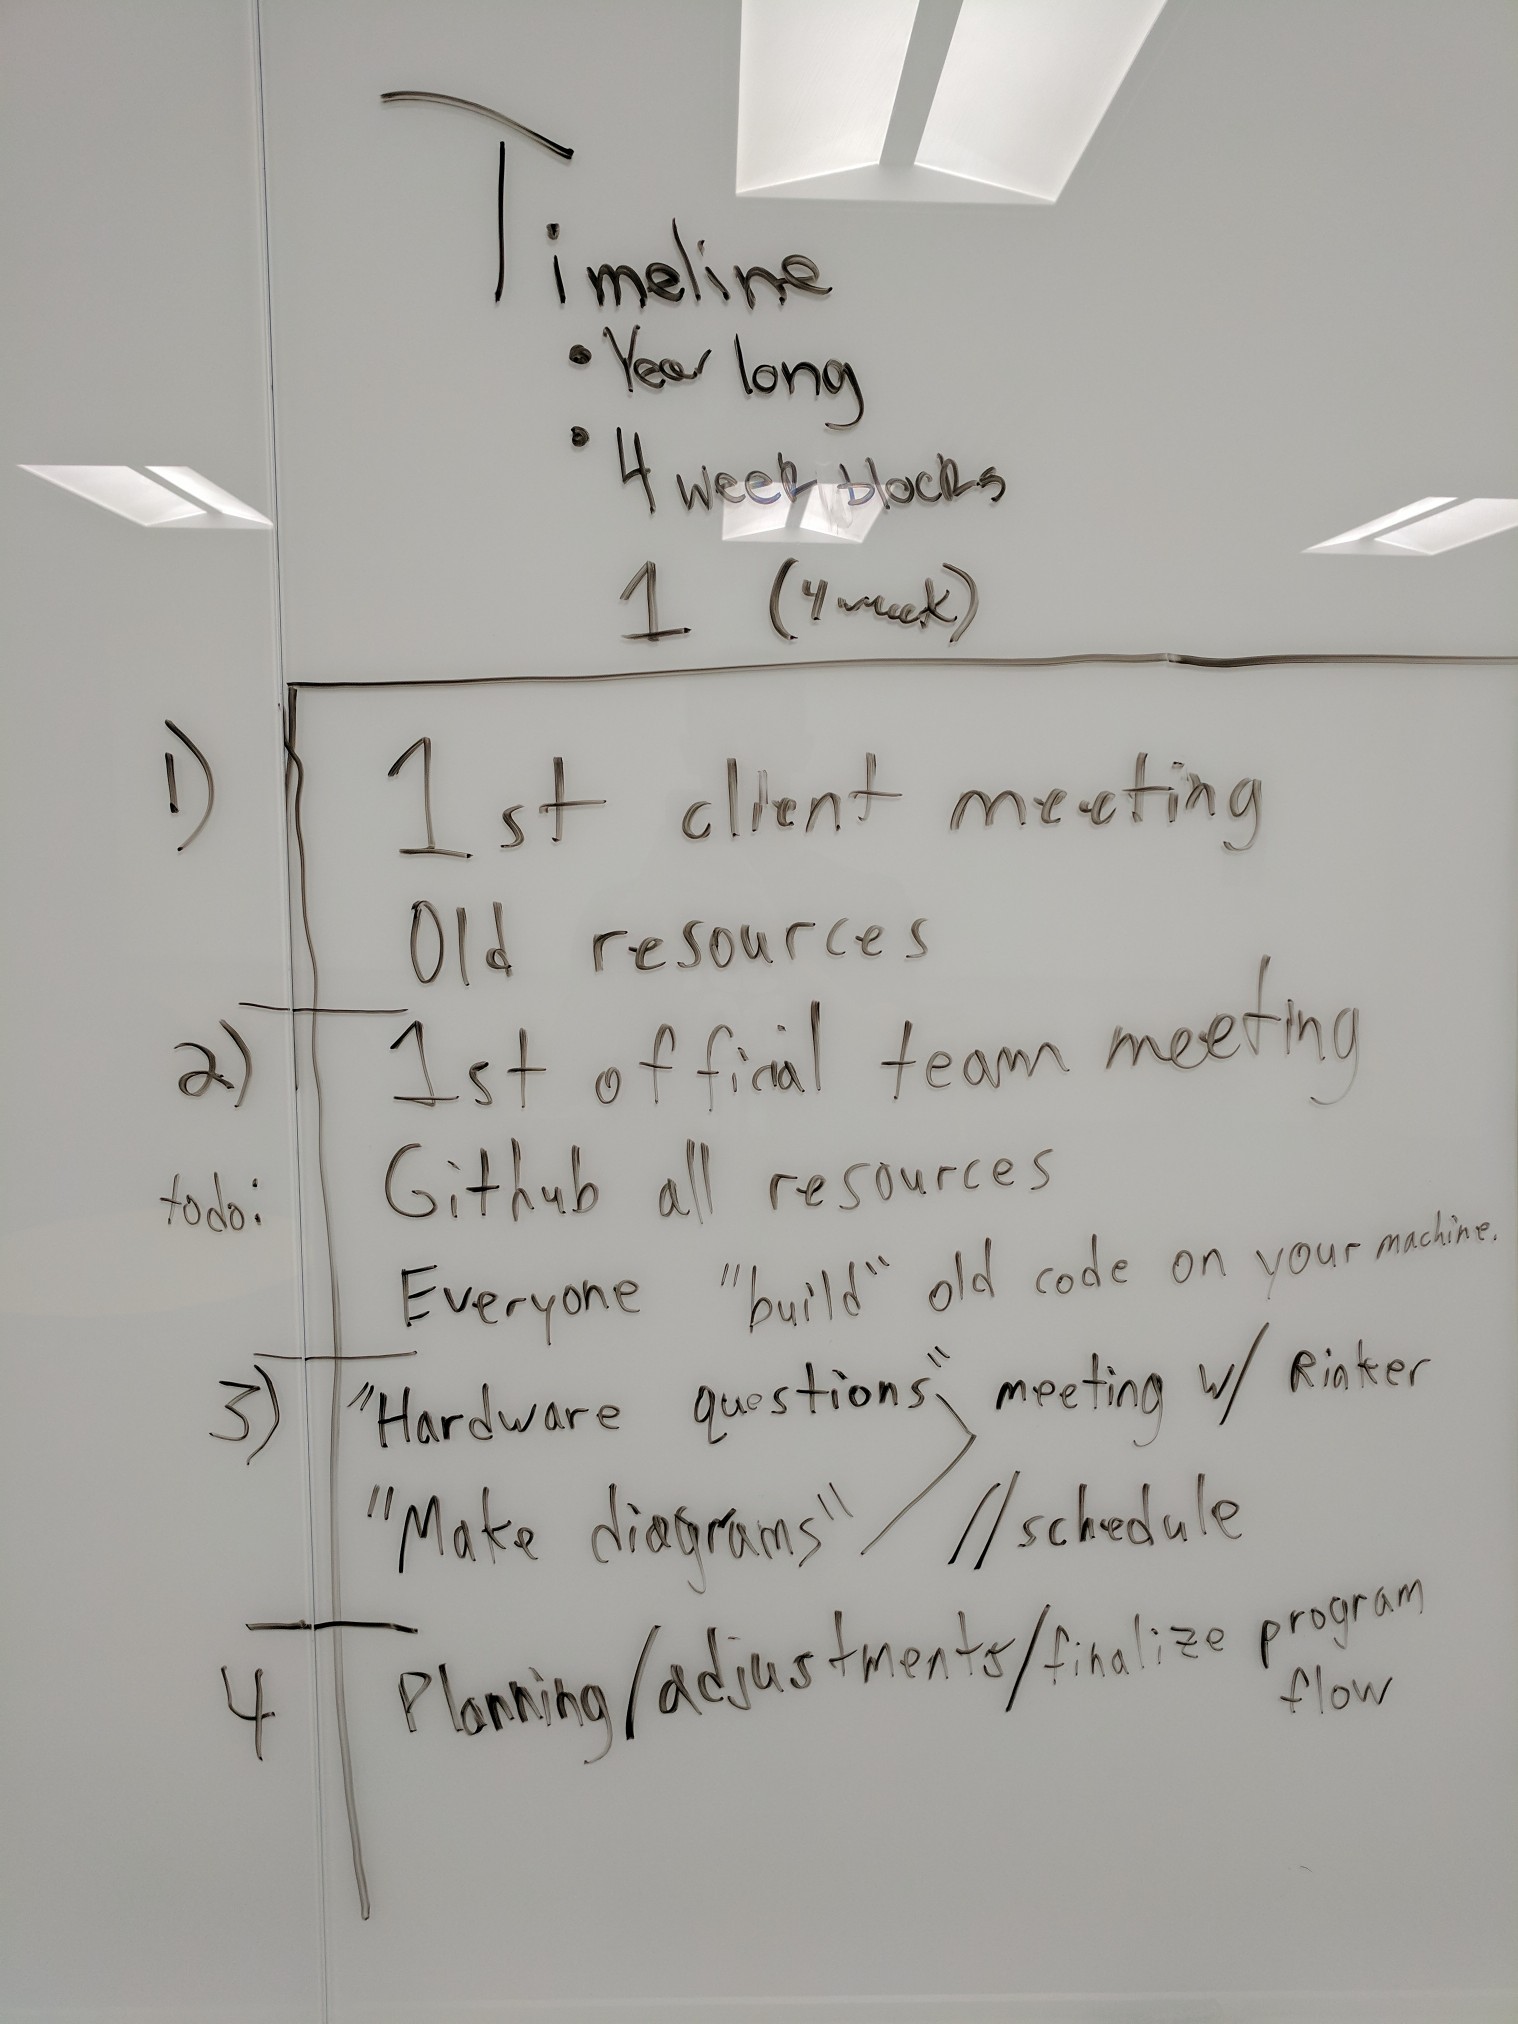 Timeline
• Year long
• 4 week blocks
1 (4 week)
1) 1st client meeting
Old resources
2) 1st official team meeting
todo: Github all resources
Everyone "build" old code on your machine.
3) "Hardware questions" meeting w/ Rinker
"Make diagrams" //schedule
4 Planning/adjustments/finalize program
flow